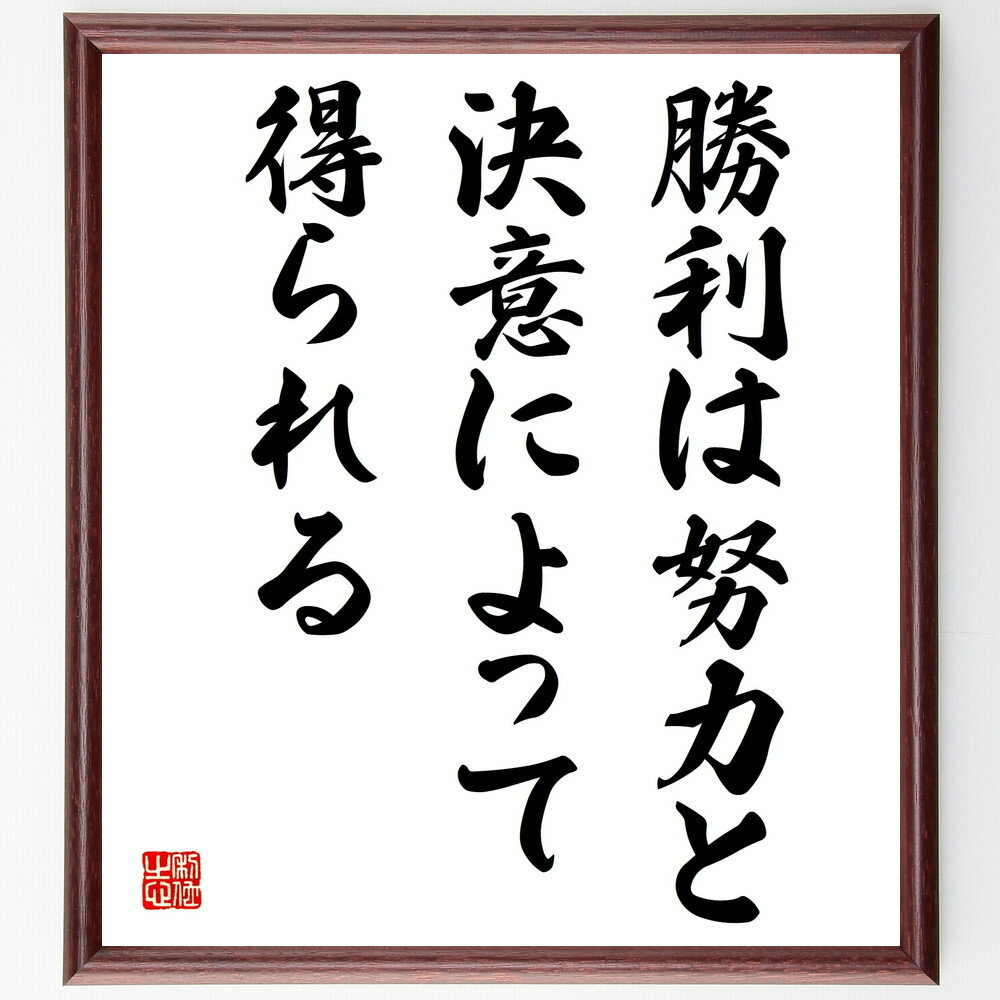 勝利は努力と
決意によって
得られる